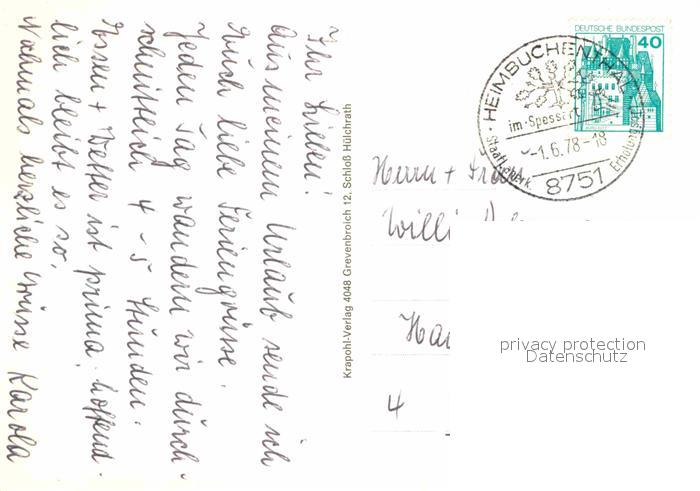 Ihr Lieben!
Aus meinem Urlaub sende ich
Euch liebe Feriengrüsse.
Jeden Tag wandern wir durch-
schnittlich 4-5 Stunden.
Essen + Wetter ist prima, hoffent-
lich bleibt es so,
Nochmals herzliche Grüsse Karola
Krapohl-Verlag 4048 Grevenbroich 12, Schloß Hülchrath
DEUTSCHE BUNDESPOST
40
HEIMBUCHENTHAL
im Spessart
-1.6.78-18
Staatl. anerk. Erholungsort
8751
Herrn + Frau
Willi
Ha
4
privacy protection
Datenschutz